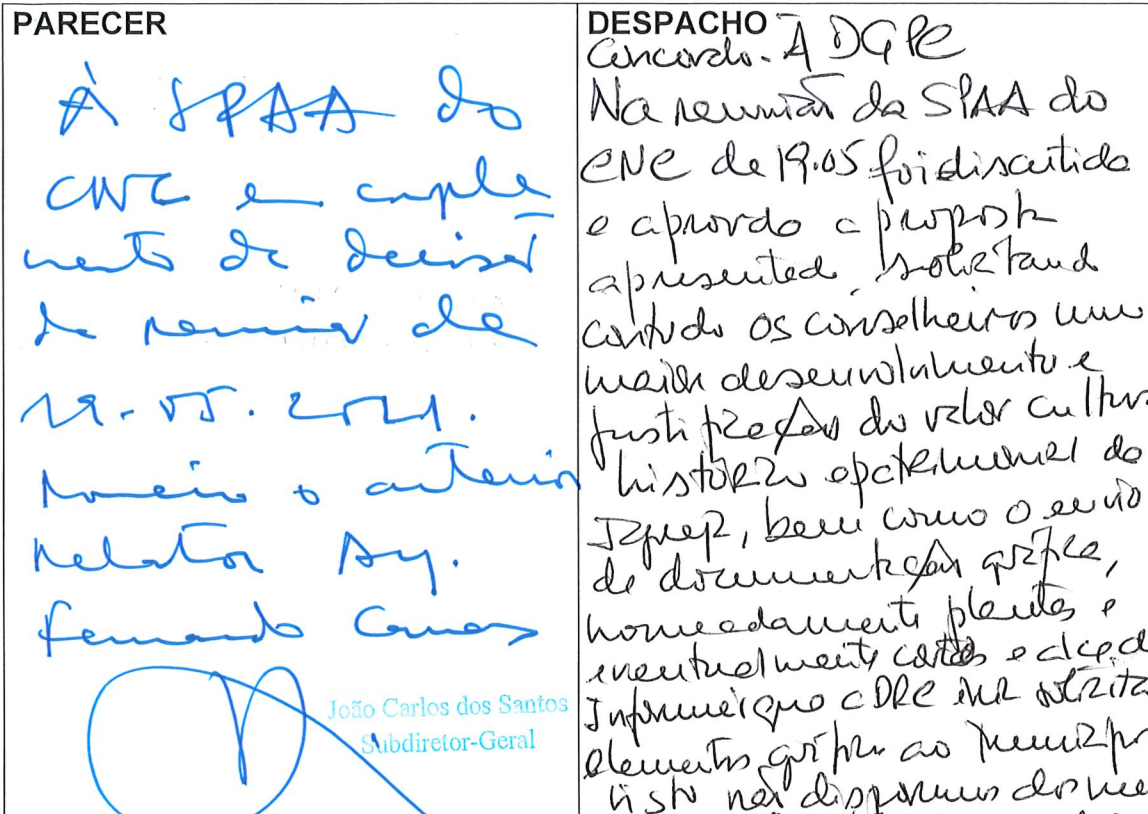 PARECER
À SPAA do
CNC em comple
mento da decisão
da reunião de
19.05.2021.
Nomeio o anterior
relator Arq.
Fernando
João Carlos dos Santos
Subdiretor-Geral
DESPACHO
Concordo. À DGPC
Na reunião da SPAA do
CNC de 19.05 foi discutida
e aprovada a proposta
apresentada, solicitando
contudo os conselheiros um
maior desenvolvimento e
justificação do valor cultur
histórico e patrimonial da
Igreja, bem como o envio
de documentação gráfica,
nomeadamente plantas e
eventualmente cortes e alçad
Informei que a DRC irá solicita
elementos gráficos ao
visto não dispormos dos me